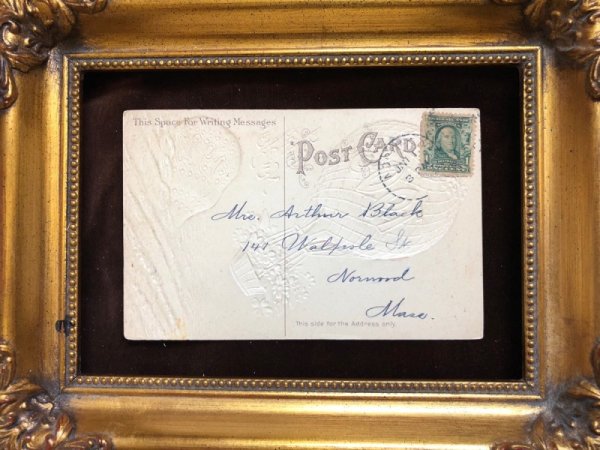 This Space For Writing Messages
POST CARD
Mrs. Arthur Black
141 Walpole St
Norwood
Mass.
This side for the Address only.